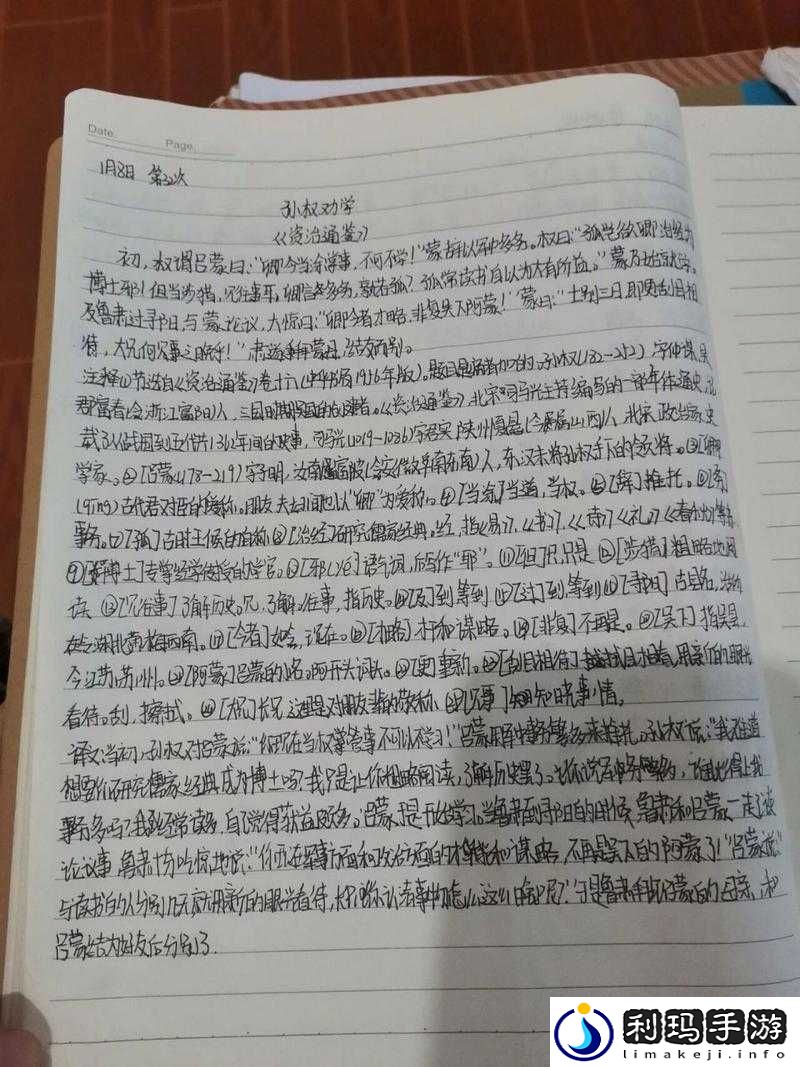 Date. Page.
1月8日 第32次
孙权劝学
《资治通鉴》
初，权谓吕蒙曰：“卿今当涂掌事，不可不学！”蒙辞以军中多务。权曰：“孤岂欲卿治经为
博士邪！但当涉猎，见往事耳。卿言多务，孰若孤？孤常读书，自以为大有所益。”蒙乃始就学。
及鲁肃过寻阳，与蒙论议，大惊曰：“卿今者才略，非复吴下阿蒙！”蒙曰：“士别三日，即更刮目相
待，大兄何见事之晚乎！”肃遂拜蒙母，结友而别。
注释①节选自《资治通鉴》卷六十六(中华书局1956年版)。题目是编者加的。孙权(182-252)字仲谋，吴
郡富春(今浙江富阳)人，三国时期吴国的创建者。《资治通鉴》，北宋司马光主持编写的一部编年体通史，记
载了从战国到五代共1362年间的史事，司马光(1019-1086)字君实 陕州夏县(今属山西)人，北宋政治家、史
学家。②[吕蒙](178-219)字子明，汝南富陂(今安徽阜南东南)人，东汉末将孙权手下的将领。③[卿]
(qīng)古代君对臣的爱称。朋友、夫妇间也以“卿”为爱称。④[当涂]当道，当权。⑤[辞]推托。⑥[务]
事务。⑦[孤]古时王侯的自称⑧[治经]研究儒家经典。经，指《易》、《书》、《诗》《礼》《春秋》等书
⑨[博士]专掌经学传授的学官。⑩[邪](yé)语气词，后写作“耶”。⑪[但]只，只是 ⑫[涉猎]粗略地阅
读 ⑬[见往事]了解历史。见，了解。往事，指历史。⑭[及]到，等到 ⑮[过]到，等到⑯[寻阳]古县名，治所
在今湖北黄梅西南。⑰[今者]如今，现在。⑱[才略]才干和谋略。⑲[非复]不再是。⑳[吴下]指吴县，
今江苏苏州。[阿蒙]吕蒙的小名。阿，开头词头。[更]重新。[刮目相待]拭目相看，用新的眼光
看待。刮，擦拭。[大兄]长兄，这里是对朋友辈的敬称 [见事]知晓事情。
译文：当初，孙权对吕蒙说：“你现在当权掌管事，不可以不学习！”吕蒙用军中事务繁多来推托。孙权说：“我难道
想要你研究儒家经典成为博士吗？我只是让你粗略阅读，了解历史罢了。你说军中事务繁多，谁比得上我
事务多呢？我经常读书，自己觉得获益很多。”吕蒙于是开始学习。当鲁肃到寻阳的时候，鲁肃和吕蒙一起谈
论议事，鲁肃十分吃惊地说：“你现在军事方面和政治方面的才能和谋略，不再是吴下的阿蒙了！”吕蒙说：“
与读书的人分别几天就用新的眼光看待，长兄你认清事物怎么这么晚呢？”于是鲁肃拜见吕蒙的母亲，和
吕蒙结为好友后分别了.
利玛手游
limakeji.info